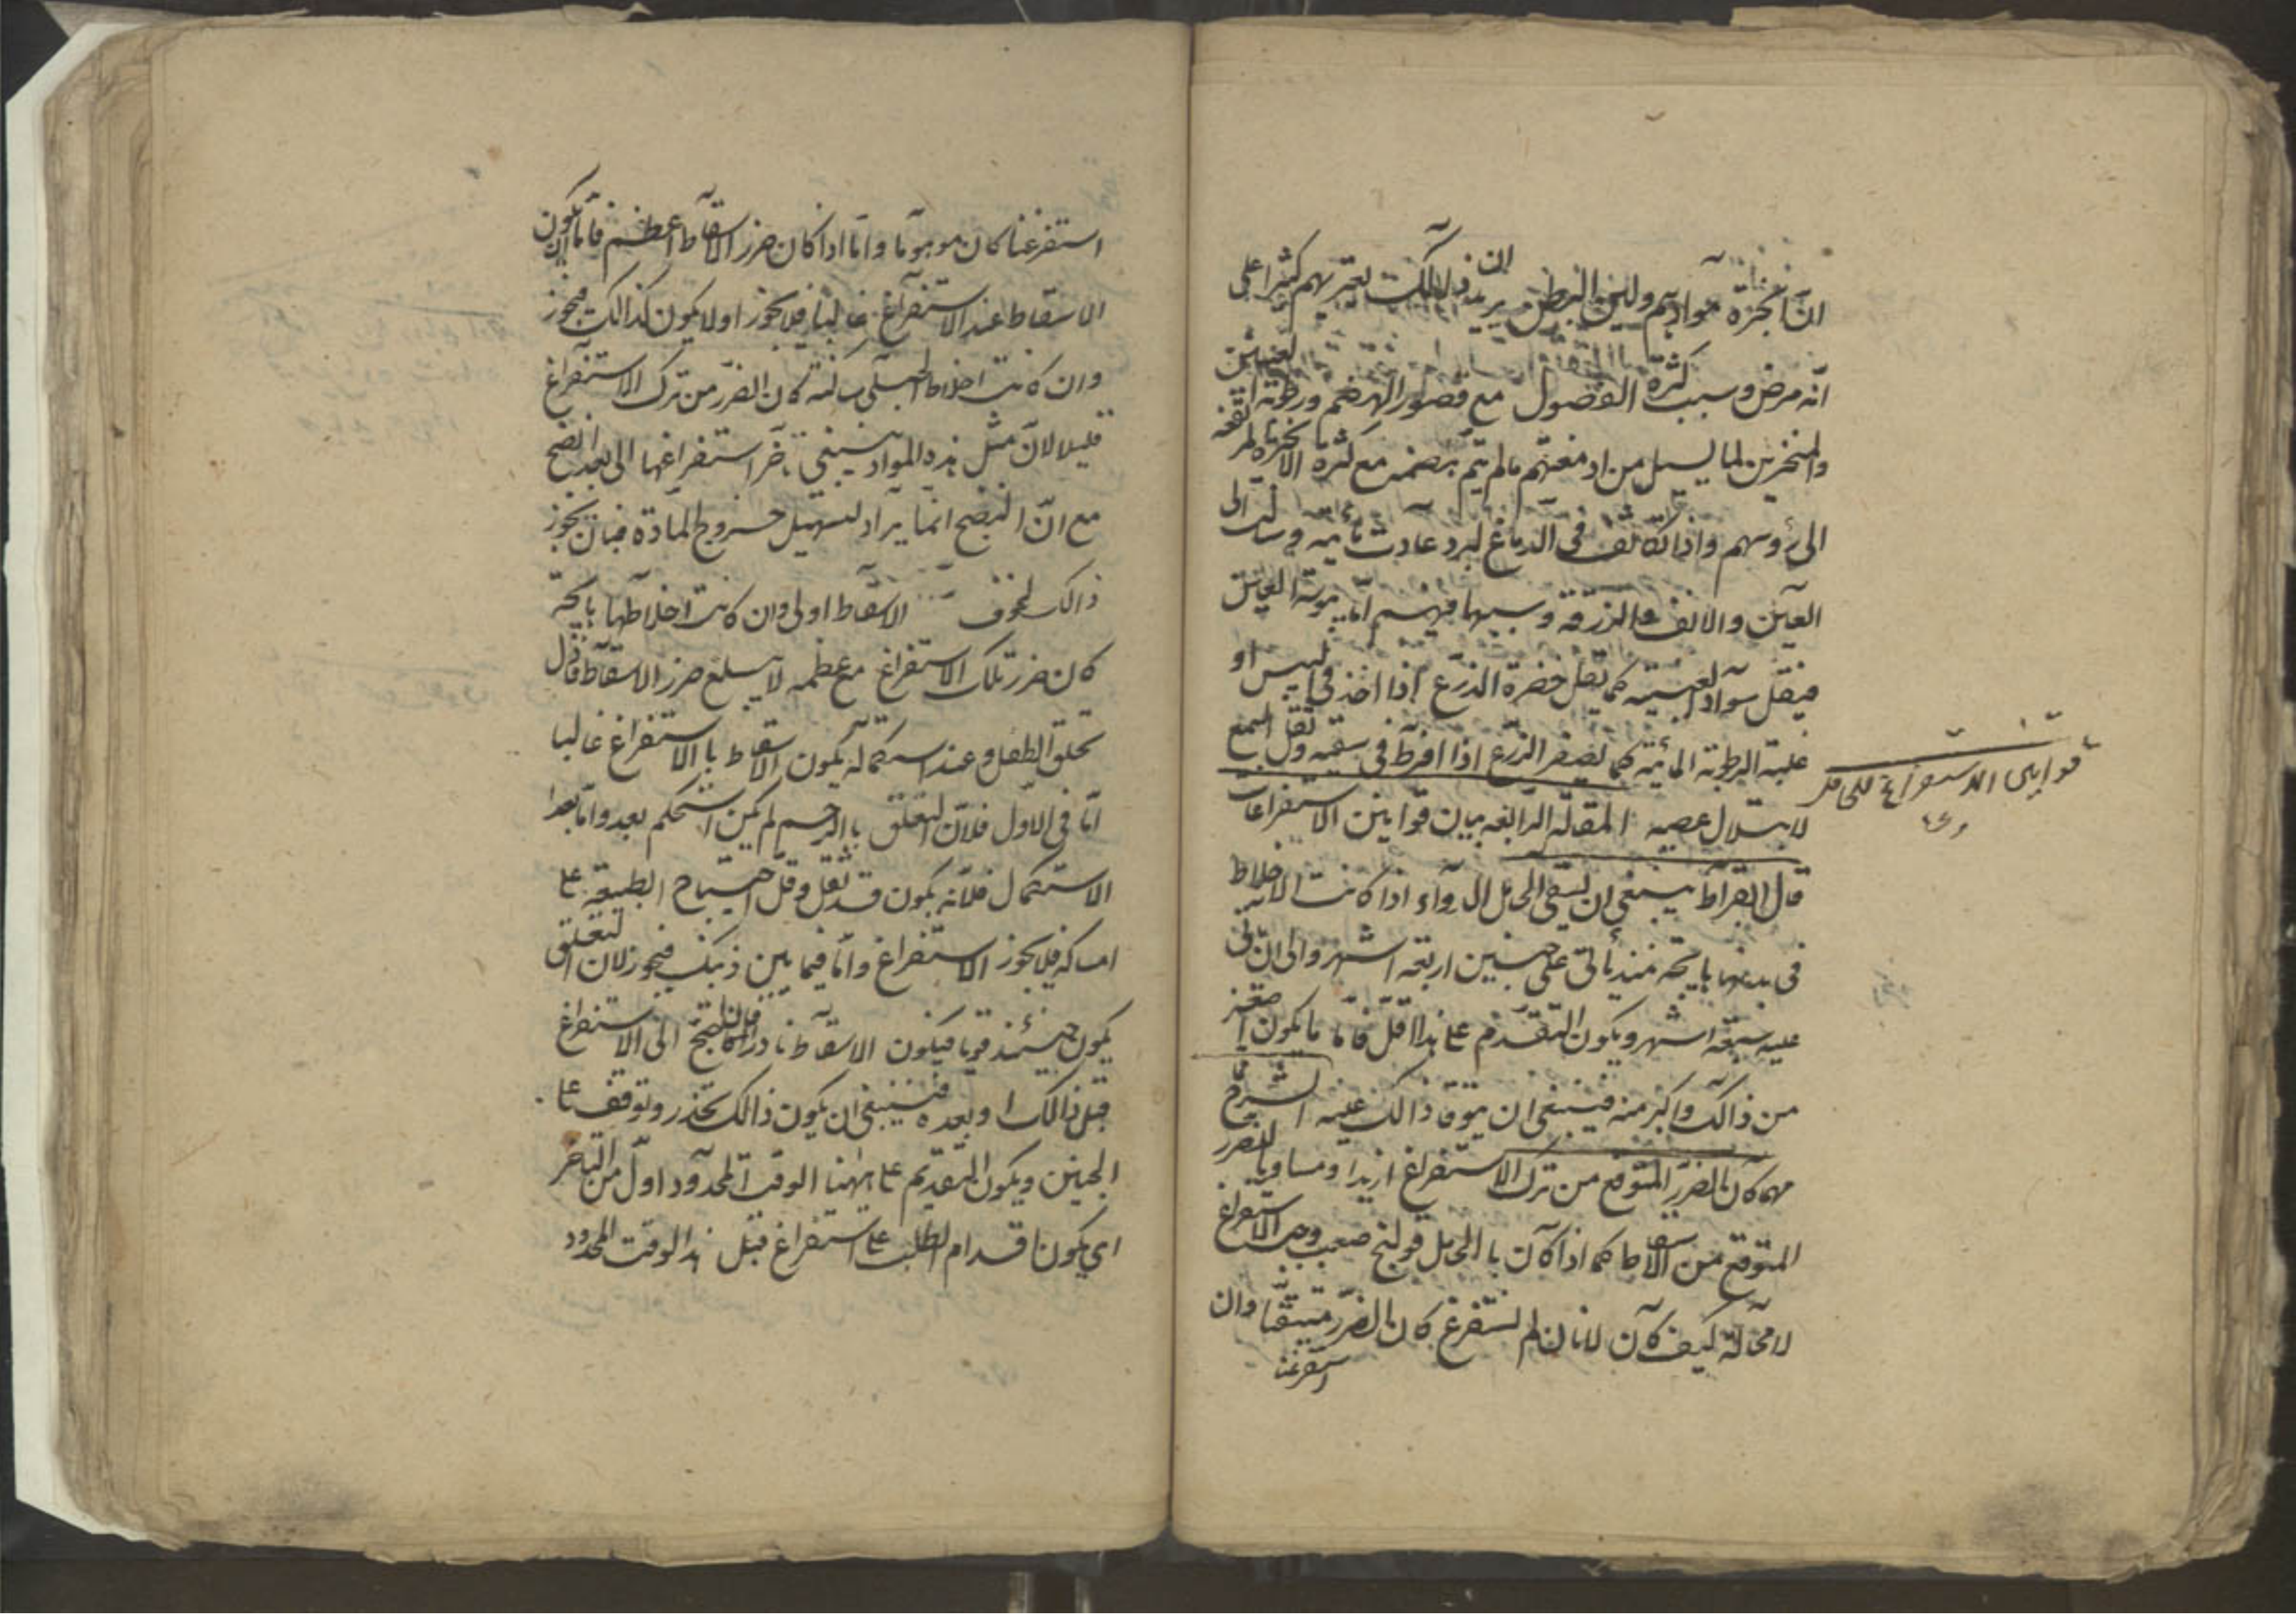 انّ ابخرة موادهم ولين البطن يريد ان ذالك لعتريهم كثيرا على
انّه مرض وسبب كثرة الفضول مع قصور الهضم ورطوبة العينين
والمنخرين لما يسيل من ادمغتهم مالم يتم هضمه مع كثرة الابخرة
الى رؤسهم واذا تكاثف فى الدماغ لبرد عادت مائية وسالت الى
العين والانف والزرقة وسببها فيهم اما يبوسة العينين
فيقل سواد العينية كما يقل خضرة الزرع اذا اخذ فى اليبس او
غلبة الرطوبة المائية كما يصفر الزرع اذا افرط فى سقيه وثقل السمع
لابتلال عصبه المقالة الرابعة بيان قوانين الاستفراغات
قوانين الاستفراغ للحامل
قال ابقراط ينبغى ان تسقى الحامل الدواء اذا كانت الاخلاط
فى بدنها هايجة منذ يأتى على جنين اربعة اشهر والى ان يأتى
عليه سبعة اشهر ويكون التقدم على هذا اقل فاما ما يكون اصغر
من ذالك واكبر منه فينبغى ان يتوقا ذالك عليه الشرح
مهما كان الضرر المتوقع من ترك الاستفراغ ازيد او مساويا للضرر
المتوقع من الاسقاط كما اذا كان بالحامل قولنج صعب وجب الاستفراغ
لامحالة كيف كان لانا ان لم نستفرغ كان الضرر متيقنا وان
استفرغنا
استفرغنا كان موهوما واما اذا كان ضرر الاسقاط اعظم فاما ان يكون
الاسقاط عند الاستفراغ غالبا فلا يجوز او لا يكون كذالك فيجوز
وان كانت اخلاط الحبلى ساكنة كان الضرر من ترك الاستفراغ
قليلا لان مثل هذه المواد ينبغى تاخر استفراغها الى بعد النضج
مع انّ النضج انما يراد لتسهيل خروج المادة فبان يجوز
ذالك لخوف الاسقاط اولى وان كانت اخلاطها هايجة
كان ضرر تلك الاستفراغ مع عظمه لا يبلغ ضرر الاسقاط فاول
تحلق الطفل وعند استكماله يكون الاسقاط باالاستفراغ غالبا
امّا فى الاول فلانّ التعلق باالرحم لم يكن استحكم بعد واما بعد
الاستكمال فلانّه يكون قد ثقل وقل احتياج الطبيعة على
امساكه فلا يجوز الاستفراغ وامّا فيما بين ذينك فيجوز لان التعلق
يكون حينئذ قويا فيكون الاسقاط نادرا الى الاستفراغ
قبل ذالك او بعده فينبغى ان يكون ذالك بحذر وتوقف على
الجنين ويكون التقديم على ههنا الوقت المحدود اول من التاخر
اى يكون اقدام الطبيب على استفراغ قبل هذا الوقت المحدود